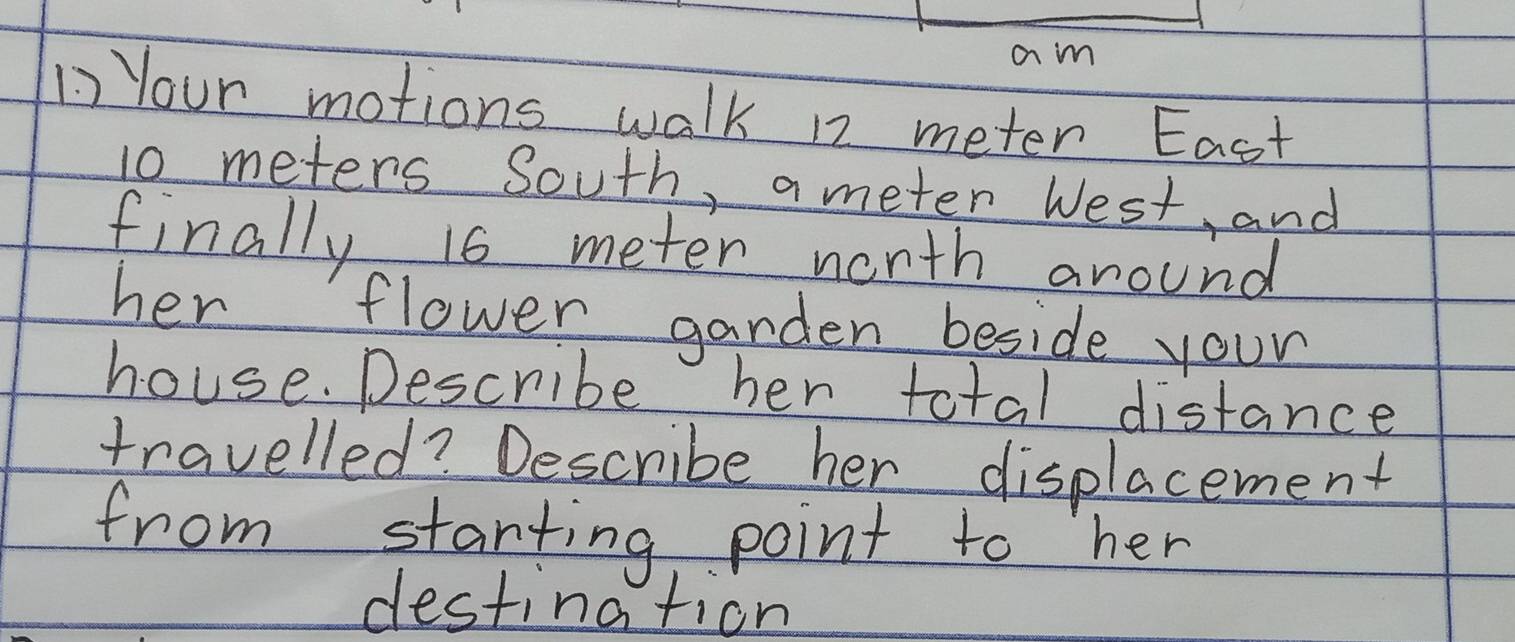 am
1.) Your motions walk 12 meter East
10 meters South, a meter West, and
finally 16 meter north around
her flower garden beside your
house. Describe her total distance
travelled? Describe her displacement
from starting point to her
destination